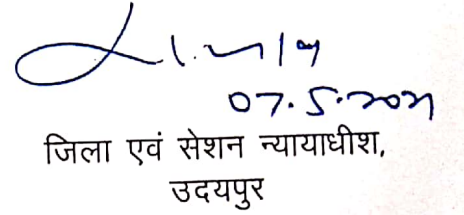 07.5.2021
जिला एवं सेशन न्यायाधीश,
उदयपुर